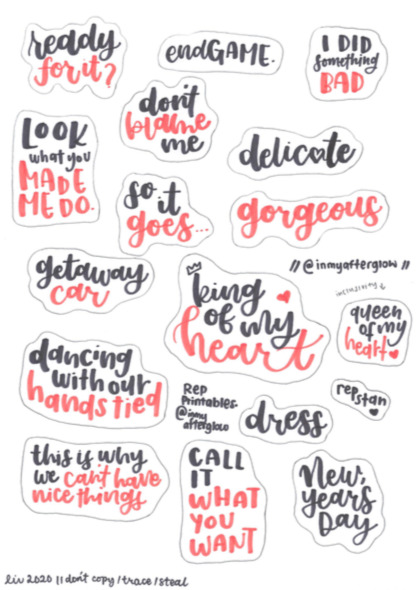 ready
for it?
endGAME.
I DID
something
BAD
don't
blame
me
LOOK
what you
MADE
ME DO.
delicate
so it
goes...
gorgeous
getaway
car
// @inmyafterglow //
king
of my
heart
queen
of my
heart
dancing
with our
hands tied
Rep
Printables.
@inmy
afterglow
dress
rep
stan
this is why
we can't have
nice things
CALL
IT
WHAT
YOU
WANT
New,
years
Day
liv 2020 || don't copy/trace/steal